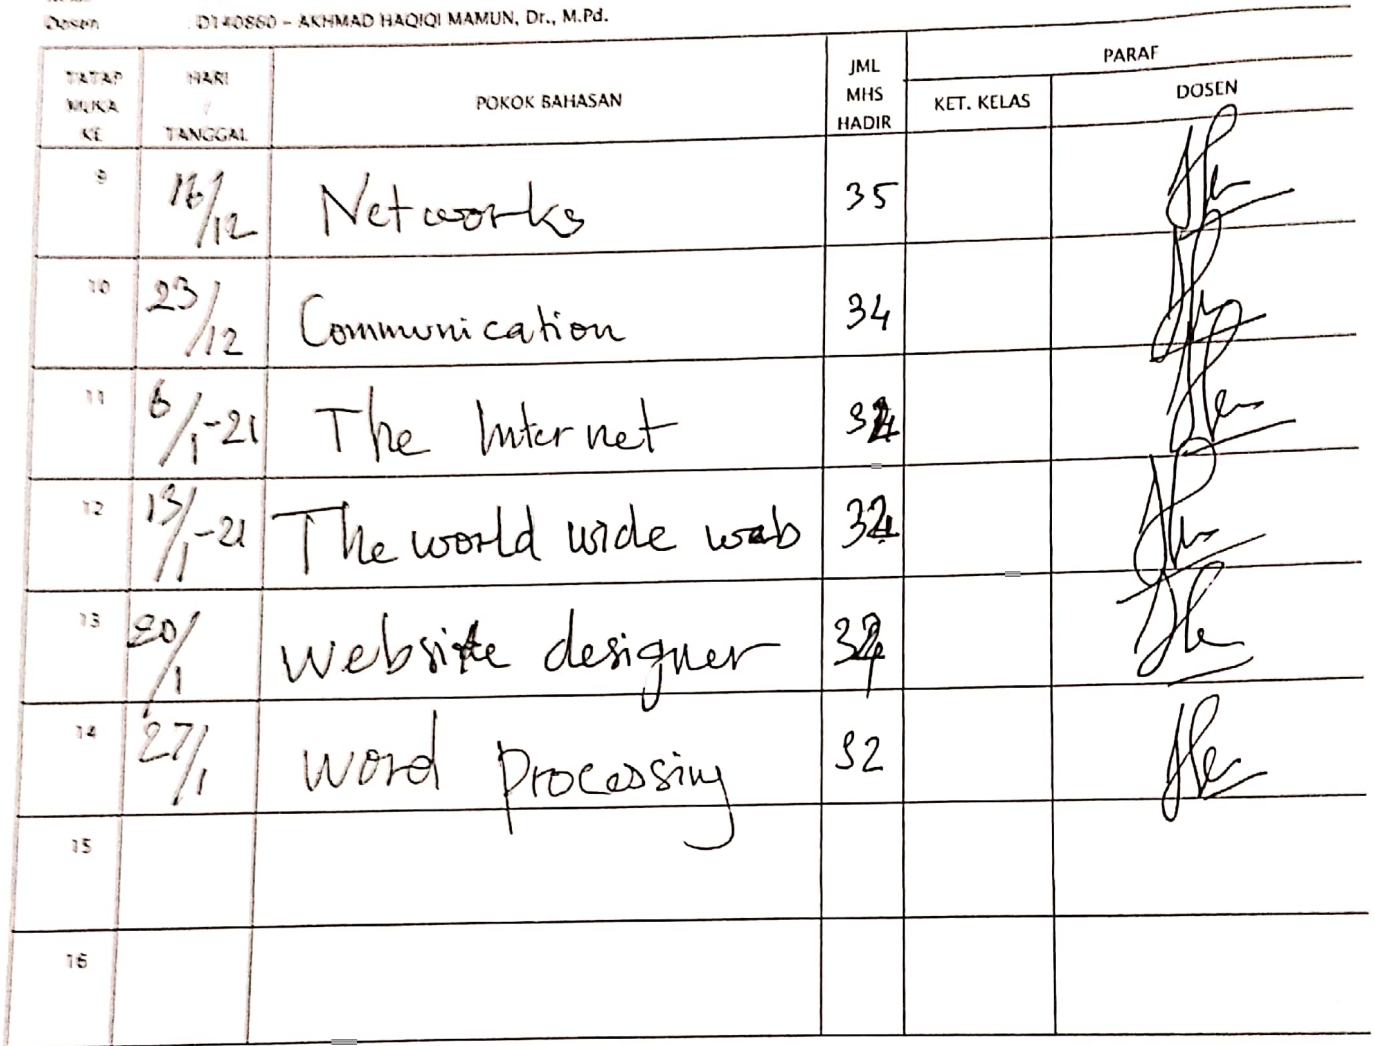 Dosen : D140860 – AKHMAD HAQIQI MAMUN, Dr., M.Pd.
TATAP MUKA KE HARI / TANGGAL POKOK BAHASAN JML MHS HADIR PARAF
KET. KELAS DOSEN
9 16/12 Networks 35
10 23/12 Communication 34
11 6/1-21 The Internet
12 13/1-21 The world wide web
13 20/1 website designer
14 27/1 word processing 32
15
16